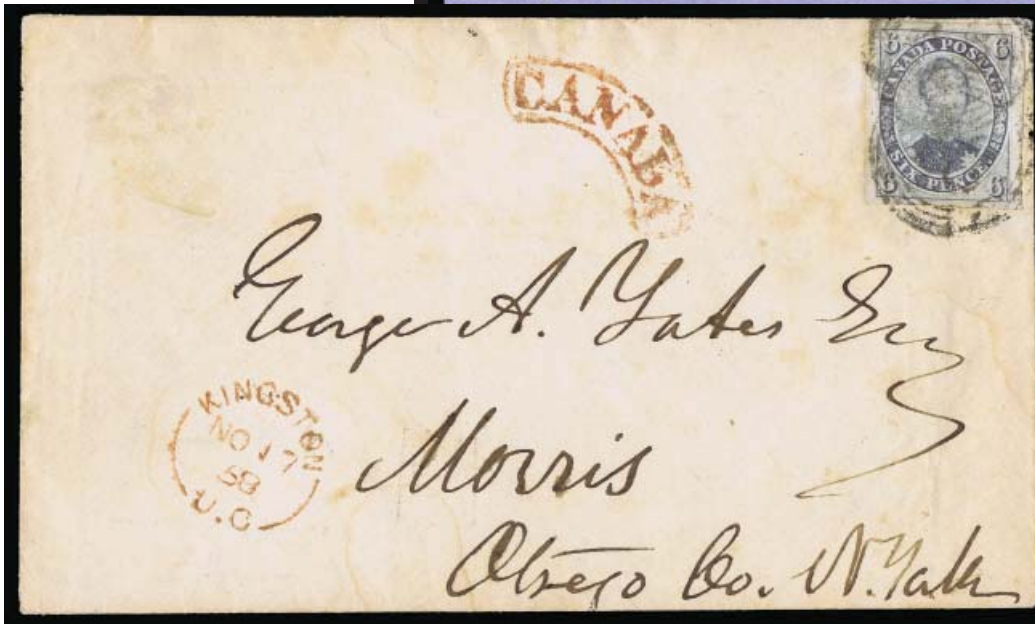 CANADA
6 6
CANADA POSTAGE
SIX PENCE
6 6
George A. Yates Esq
KINGSTON
NO 17
58
U.C
Morris
Otsego Co. N. York